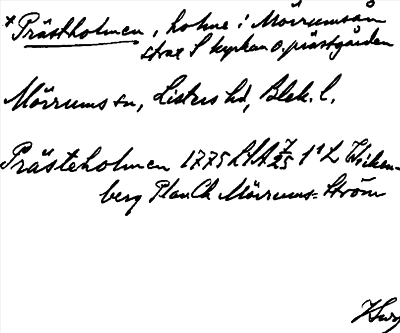 *Prästholmen, holme i Mörrumsån
strax S kyrkan o. prästgården
Mörrums sn, Listers hd, Blek. l.
Prästeholmen 1775 LSA 7/25 1¹ L Wiken-
berg Plan Ch Mörrums=Ström